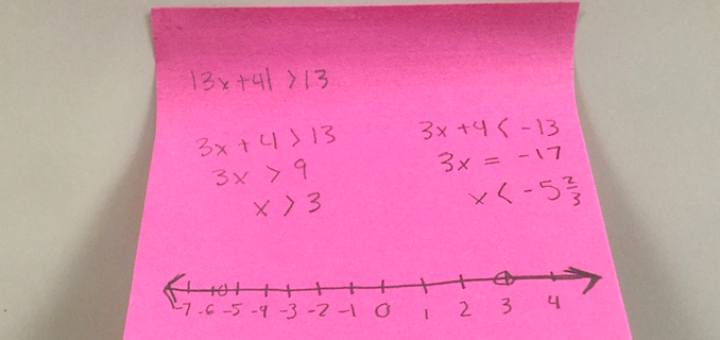 |3x+4| > 13
3x+4 > 13
3x > 9
x > 3
3x+4 < -13
3x = -17
x < -5 2/3
-7 -6 -5 -4 -3 -2 -1 0 1 2 3 4